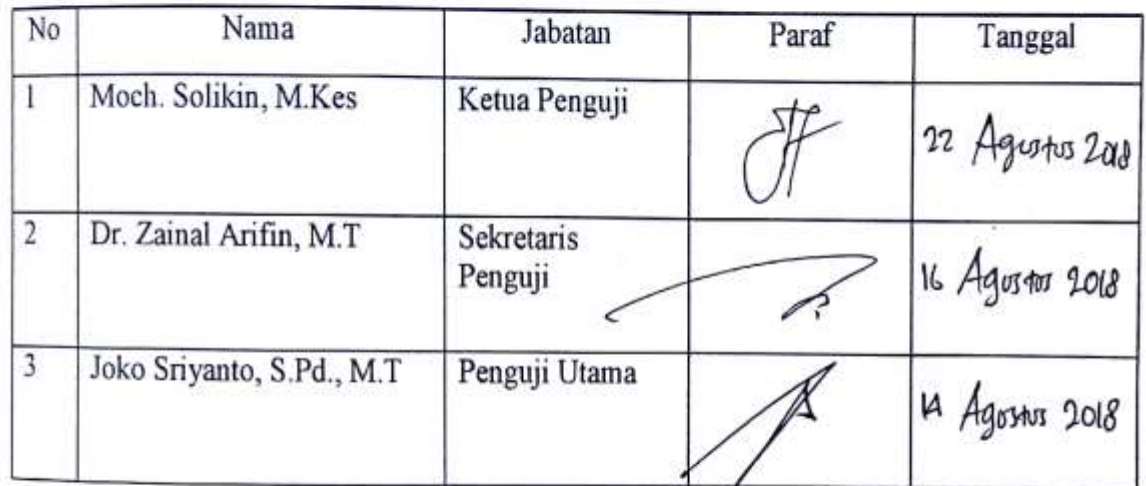 No Nama Jabatan Paraf Tanggal
1 Moch. Solikin, M.Kes Ketua Penguji 22 Agustus 2018
2 Dr. Zainal Arifin, M.T Sekretaris
Penguji 16 Agustus 2018
3 Joko Sriyanto, S.Pd., M.T Penguji Utama 14 Agustus 2018